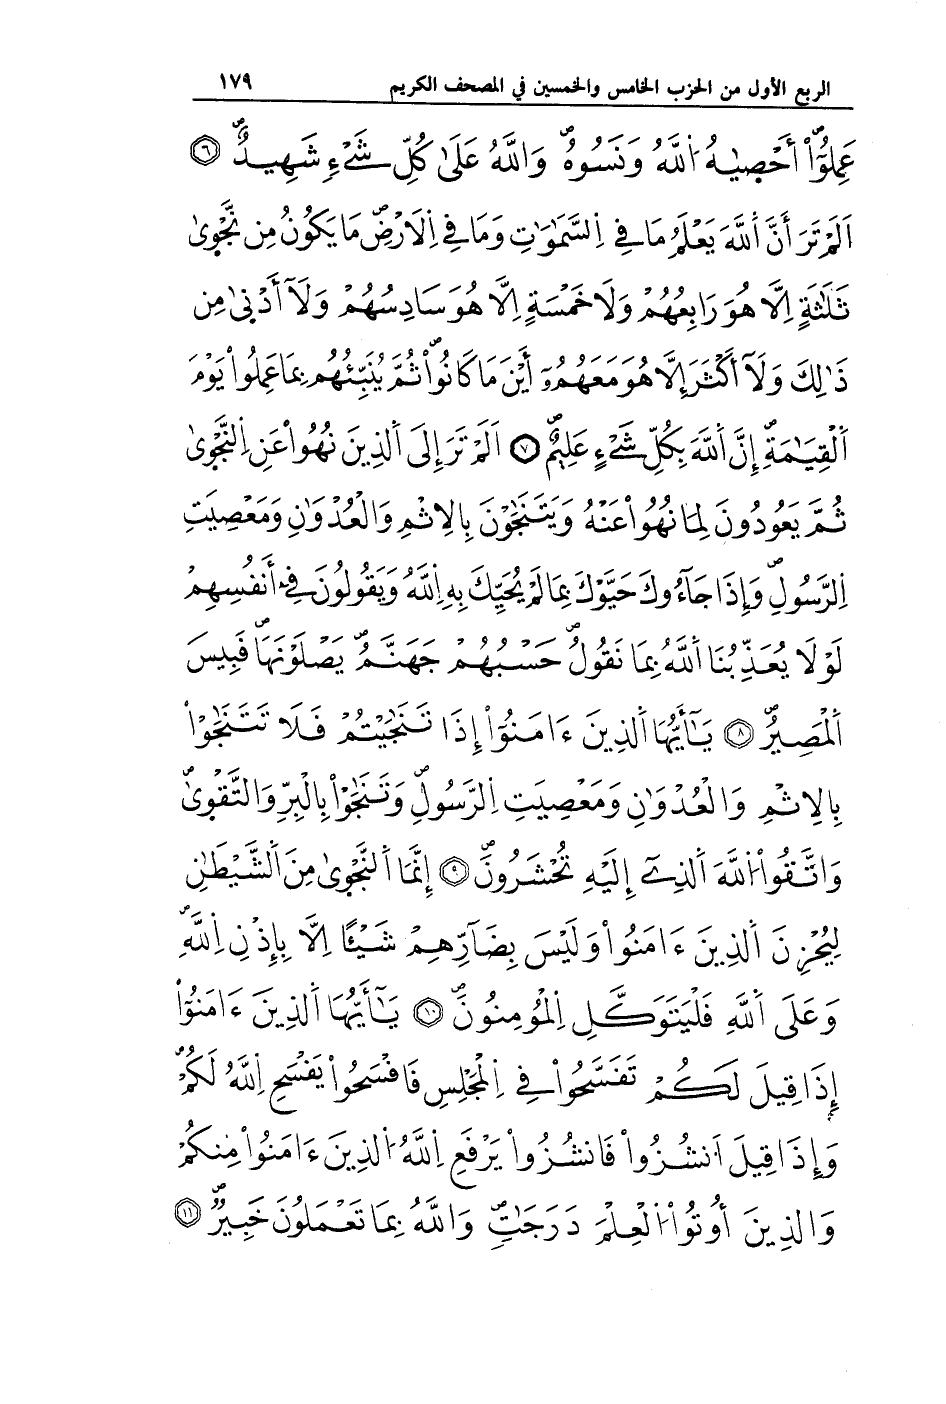 الربع الأول من الحزب الخامس والخمسين في المصحف الكريم ١٧٩
عَمِلُوٓاْۖ أَحْصىٰهُ اُ۬للَّهُ وَنَسُوهُۖ وَاللَّهُ عَلَىٰ كُلِّ شَےْءٖ شَهِيدٌۖ ٦
اَلَمْ تَرَ أَنَّ اَ۬للَّهَ يَعْلَمُ مَا فِے اِ۬لسَّمَٰوَٰتِ وَمَا فِے اِ۬لَارْضِۖ مَا يَكُونُ مِن نَّجْوىٰ
ثَلَٰثَةٍ اِلَّا هُوَ رَابِعُهُمْ وَلَا خَمْسَةٍ اِلَّا هُوَ سَادِسُهُمْ وَلَآ أَدْنىٰ مِن
ذَٰلِكَ وَلَآ أَكْثَرَ إِلَّا هُوَ مَعَهُمُۥٓ أَيْنَ مَا كَانُواْۖ ثُمَّ يُنَبِّئُهُم بِمَا عَمِلُواْ يَوْمَ
اَ۬لْقِيَٰمَةِۖ إِنَّ اَ۬للَّهَ بِكُلِّ شَےْءٍ عَلِيمٌۖ ٧ اَلَمْ تَرَ إِلَى اَ۬لذِينَ نُهُواْ عَنِ اِ۬لنَّجْوىٰ
ثُمَّ يَعُودُونَ لِمَا نُهُواْ عَنْهُ وَيَتَنَٰجَوْنَ بِالِاثْمِ وَالْعُدْوَٰنِ وَمَعْصِيَتِ
اِ۬لرَّسُولِۖ وَإِذَا جَآءُوكَ حَيَّوْكَ بِمَا لَمْ يُحَيِّكَ بِهِ اِ۬للَّهُ وَيَقُولُونَ فِےٓ أَنفُسِهِمْ
لَوْلَا يُعَذِّبُنَا اَ۬للَّهُ بِمَا نَقُولُۖ حَسْبُهُمْ جَهَنَّمُۖ يَصْلَوْنَهَاۖ فَبِيسَ
اَ۬لْمَصِيرُۖ ٨ يَٰٓأَيُّهَا اَ۬لذِينَ ءَامَنُوٓاْ إِذَا تَنَٰجَيْتُمْ فَلَا تَتَنَٰجَوْاْ
بِالِاثْمِ وَالْعُدْوَٰنِ وَمَعْصِيَتِ اِ۬لرَّسُولِۖ وَتَنَٰجَوْاْ بِالْبِرِّ وَالتَّقْوىٰۖ
وَاتَّقُواْ اُ۬للَّهَ اَ۬لذِےٓ إِلَيْهِ تُحْشَرُونَۖ ٩ إِنَّمَا اَ۬لنَّجْوىٰ مِنَ اَ۬لشَّيْطَٰنِ
لِيُحْزِنَ اَ۬لذِينَ ءَامَنُواْ وَلَيْسَ بِضَآرِّهِمْ شَيْـًٔا اِلَّا بِإِذْنِ اِ۬للَّهِۖ
وَعَلَى اَ۬للَّهِ فَلْيَتَوَكَّلِ اِ۬لْمُومِنُونَۖ ١٠ يَٰٓأَيُّهَا اَ۬لذِينَ ءَامَنُوٓاْ
إِذَا قِيلَ لَكُمْ تَفَسَّحُواْ فِے اِ۬لْمَجْلِسِ فَافْسَحُواْ يَفْسَحِ اِ۬للَّهُ لَكُمْۖ
وَإِذَا قِيلَ اَ۟نشُزُواْ فَانشُزُواْ يَرْفَعِ اِ۬للَّهُ اُ۬لذِينَ ءَامَنُواْ مِنكُمْ
وَالذِينَ أُوتُواْ اُ۬لْعِلْمَ دَرَجَٰتٖۖ وَاللَّهُ بِمَا تَعْمَلُونَ خَبِيرٌۖ ١١